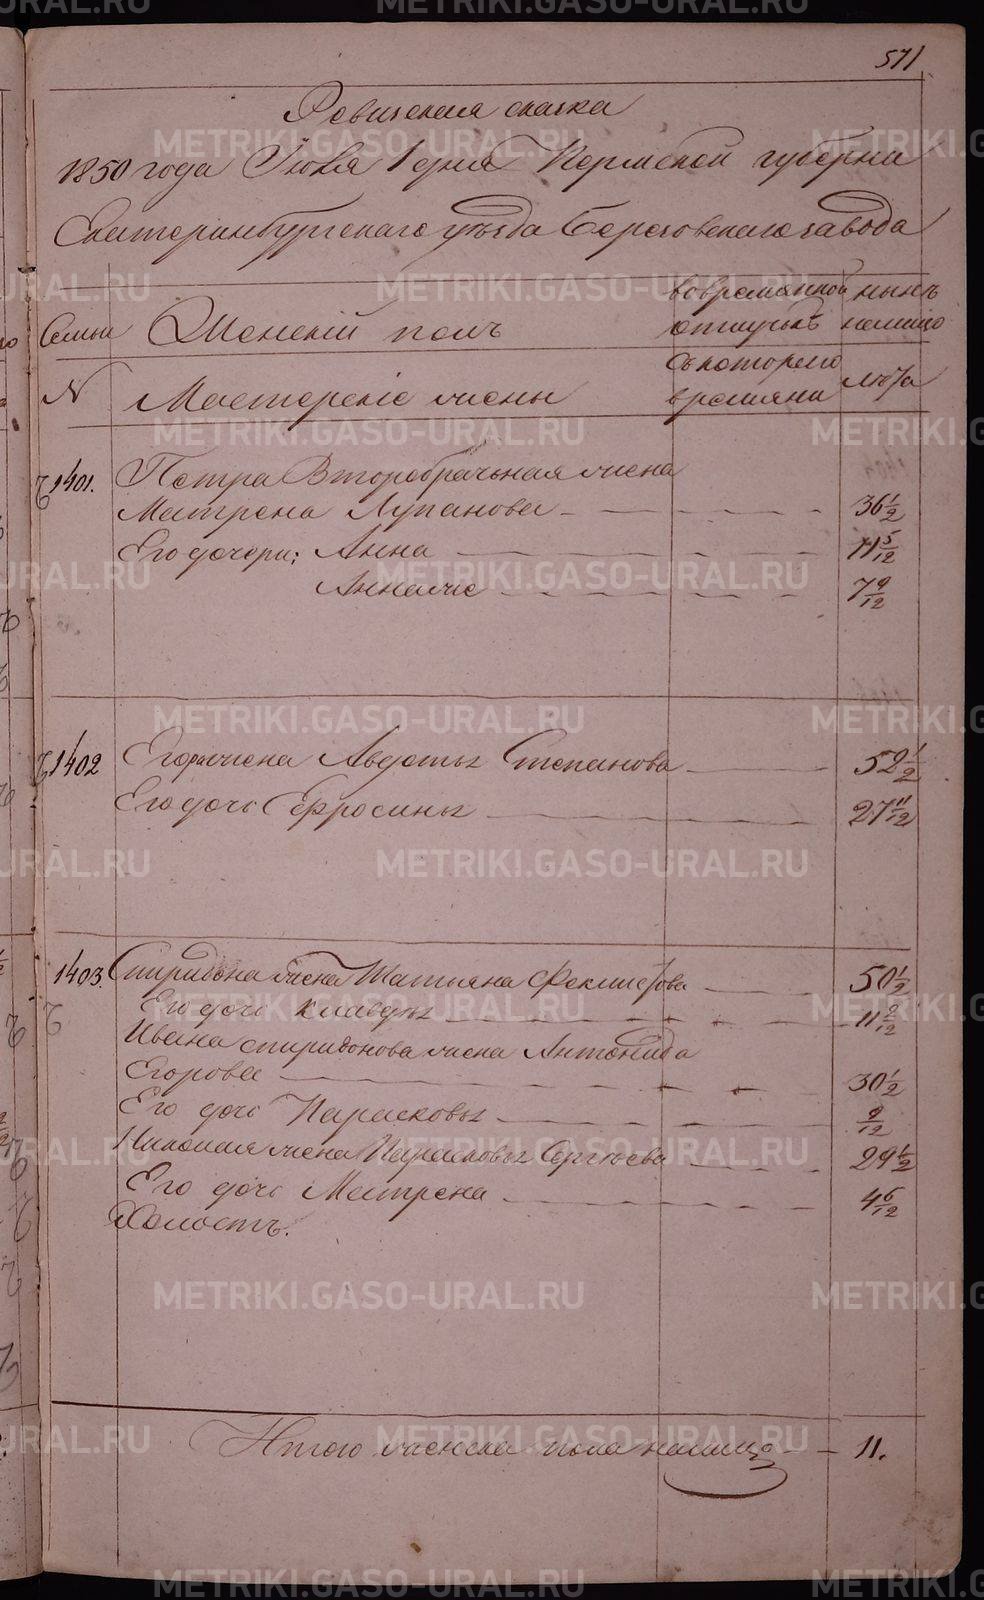 571
Ревизская сказка
1850 года Июля 1 дня Пермской губерни
Екатеринбургского уѣзда Березовского завода
Семьи
Женскій полъ
во временной отлучкѣ
нынѣ на лицо
N
Мастерскіе жены
съ которого времяни
лѣта
1401.
Петра Второбрачьная жена
Матрена Лупанова 36 1/2
Его дочери: Анна 11 5/12
Анна же 7 9/12
1402
Егора жена Авдотья Степанова 52 1/2
Его дочь Ефросинья 27 11/12
1403.
Спиридона жена Татьяна Феклистова 50 1/2
Его дочь Клавдья 11 2/12
Ивана Спиридонова жена Антонида
Егорова 30 1/2
Его дочь Парасковья 2/12
Николая жена Парасковья Сергѣева 29 1/2
Его дочь Матрена 4 6/12
Холостъ.
Итого женска пола на лицо 11.
METRIKI.GASO-URAL.RU